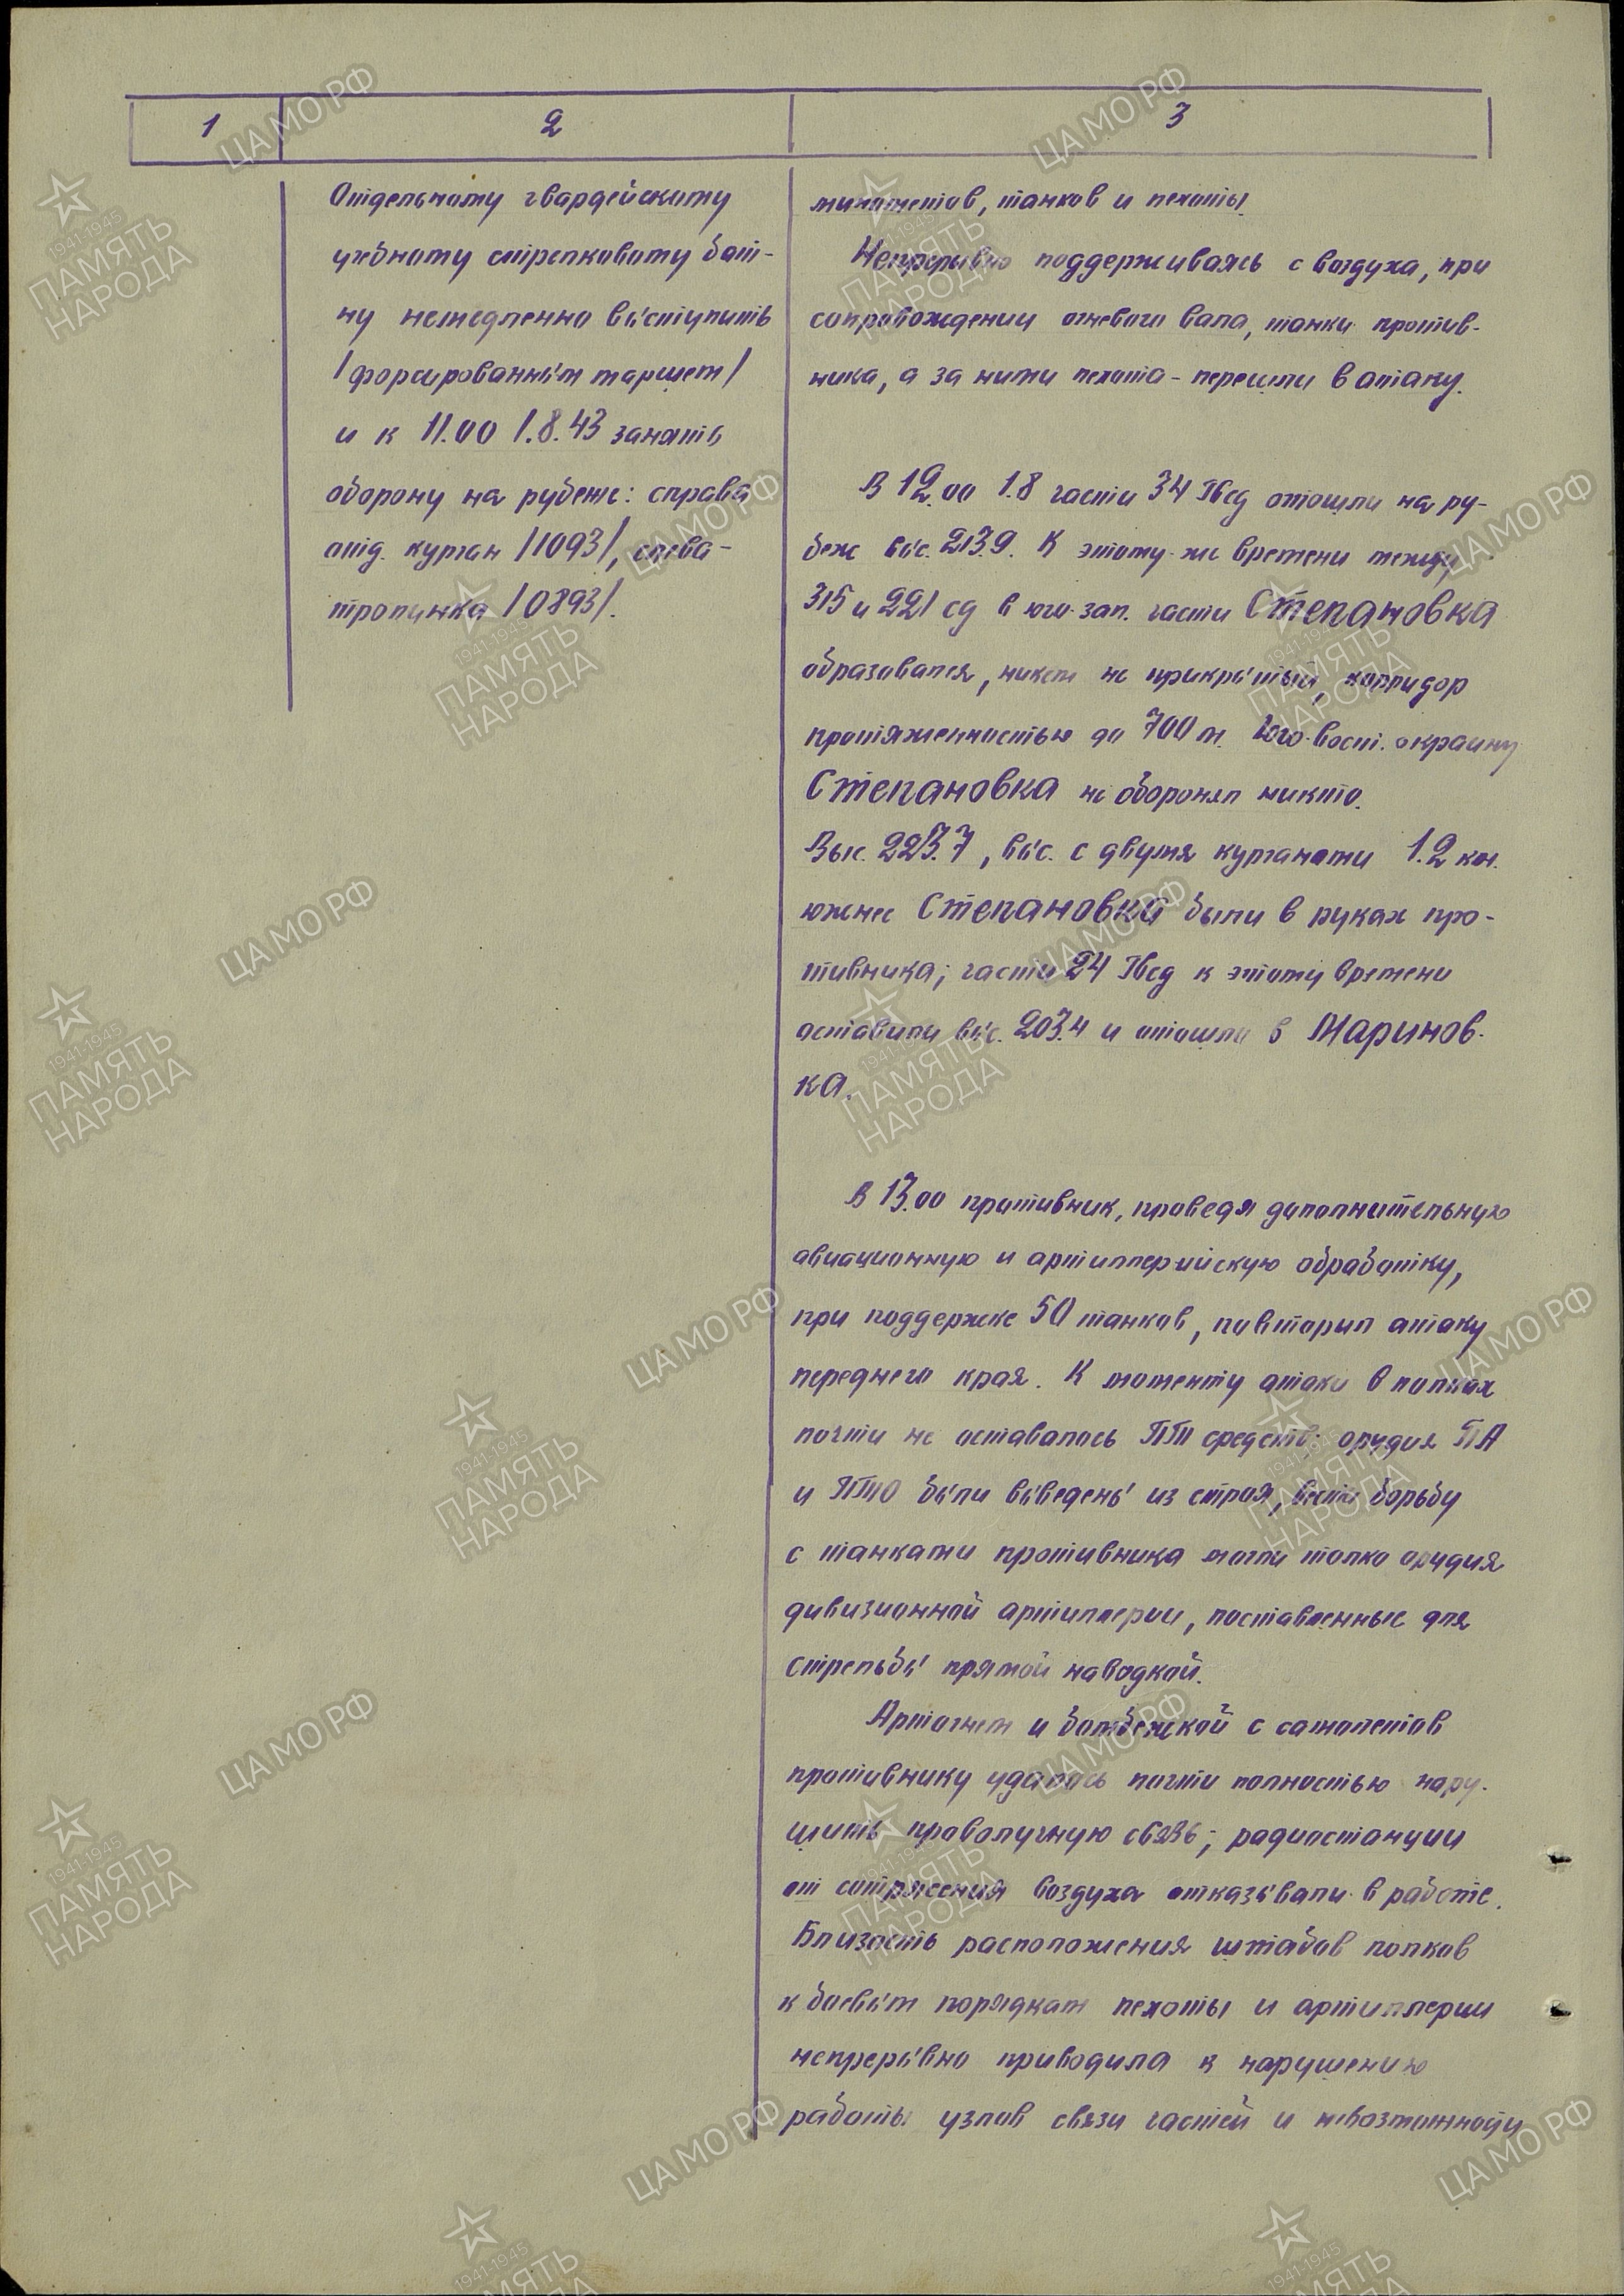 1
2
3
Отдельному гвардейскому
учебному стрелковому бат-
ну немедленно выступить
/форсированным маршем/
и к 11.00 1.8.43 занять
оборону на рубеже: справа
отд. курган /1093/, слева-
тропинка /0893/.
минометов, танков и пехоты.
Непрерывно поддерживаясь с воздуха, при
сопровождении огневого вала, танки против-
ника, а за ними пехота - перешли в атаку.
В 12.00 1.8 части 34 Гвсд отошли на ру-
беж выс. 213.9. К этому же времени между
315 и 221 сд в юго-зап. части Степановка
образовался, никем не прикрытый, корридор
протяженностью до 700 м. Юго-вост. окраину
Степановка не оборонял никто.
Выс. 223.7, выс. с двумя курганами 1.2 км.
южнее Степановка были в руках про-
тивника; части 24 Гвсд к этому времени
оставили выс. 203.4 и отошли в Маринов-
ка.
В 13.00 противник, проведя дополнительную
авиационную и артиллерийскую обработку,
при поддержке 50 танков, повторил атаку
переднего края. К моменту атаки в полках
почти не оставалось ПТ средств: орудия ПА
и ПТО были выведены из строя, вести борьбу
с танками противника могли толко орудия
дивизионной артиллерии, поставленные для
стрельбы прямой наводкой.
Артогнем и бомбежкой с самолетов
противнику удалось почти полностью нару-
шить проволучную связь; радиостанции
от сотрясения воздуха отказывали в работе.
Близость расположения штабов полков
к боевым порядкам пехоты и артиллерии
непрерывно приводила к нарушению
работы узлов связи частей и невозможносту
ЦАМО РФ
1941-1945
ПАМЯТЬ
НАРОДА